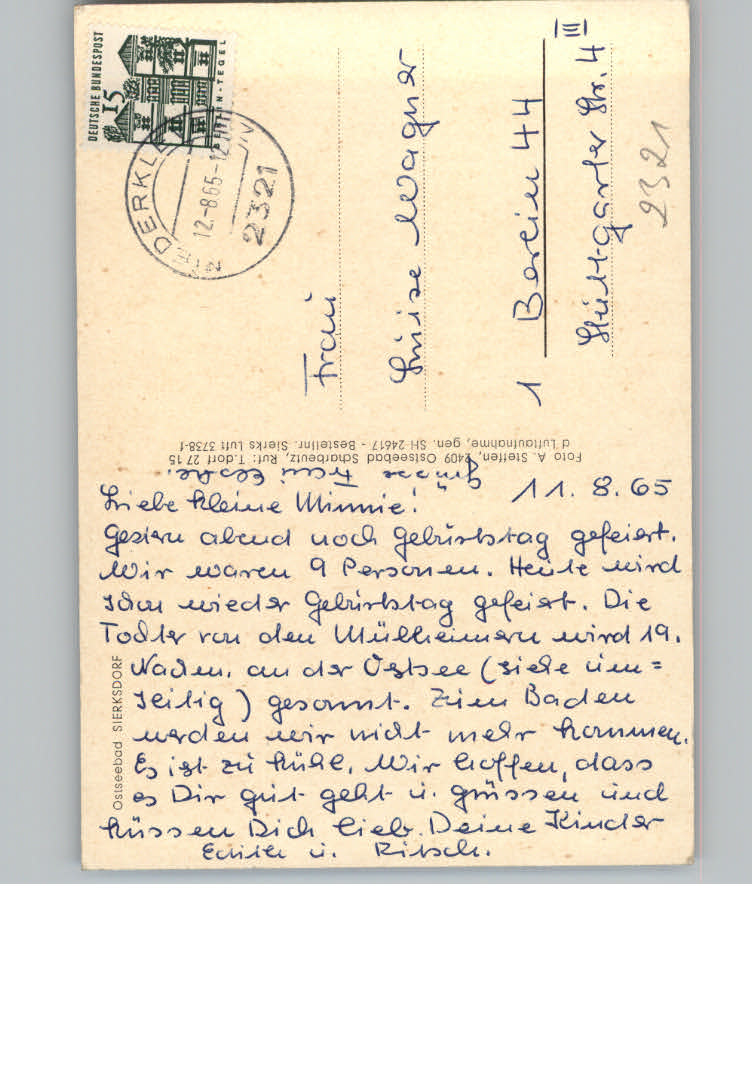 DEUTSCHE BUNDESPOST
15
BERLIN-TEGEL
12.-8.65-12
2321
Frau
Luise Wagner
1 Berlin 44
Stuttgarter Str. 4 III
2321
Foto A. Steffen, 2409 Ostseebad Scharbeutz, Ruf: T.dorf 27 15
d Luftaufnahme, gen. SH 24617 - Bestellnr. Sierks Luft 3738-f
Ostseebad SIERKSDORF
11. 8. 65
Liebe kleine Minnie!
Gestern abend noch Geburtstag gefeiert.
Wir waren 9 Personen. Heute wird
schon wieder Geburtstag gefeiert. Die
Tochter von den Mülheimern wird 19.
Nachm. an der Ostsee (siehe um=
seitig) gesonnt. Zum Baden
werden wir nicht mehr kommen.
Es ist zu kühl. Wir hoffen, dass
es Dir gut geht u. grüssen und
küssen Dich lieb. Deine Kinder
Edith u.
Grüsse Frau